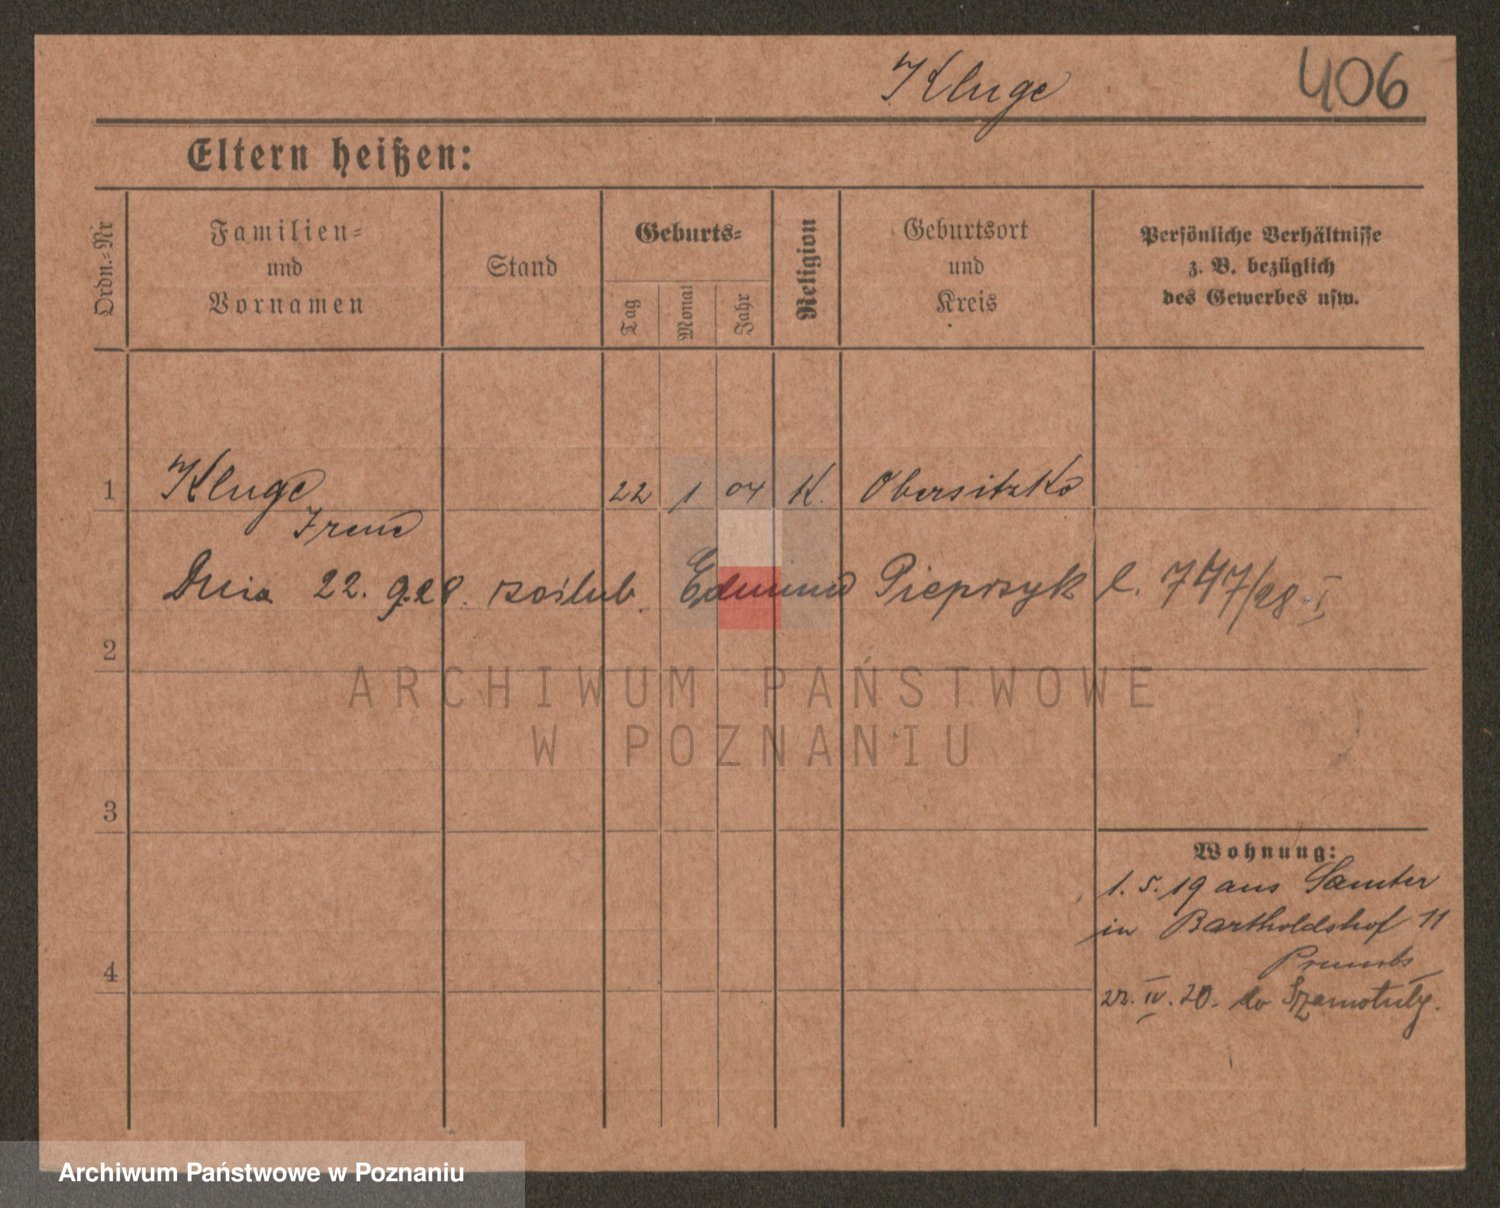 Kluge 406
Eltern heißen:
Ordn.-Nr
Familien-
und
Vornamen
Stand
Geburts-
Tag
Monat
Jahr
Religion
Geburtsort
und
Kreis
Persönliche Verhältnisse
z. B. bezüglich
des Gewerbes usw.
1 Kluge 22 1 04 K. Obersitzko
Irene
Dnia 22. 9.28. zaślub. Edmund Pieprzyk l. 747/28 I
2
ARCHIWUM PAŃSTWOWE
W POZNANIU
3
Wohnung:
1. 5. 19 aus Samter
in Bartholdshof 11
4
22. IV. 20. do Szamotuły.
Archiwum Państwowe w Poznaniu